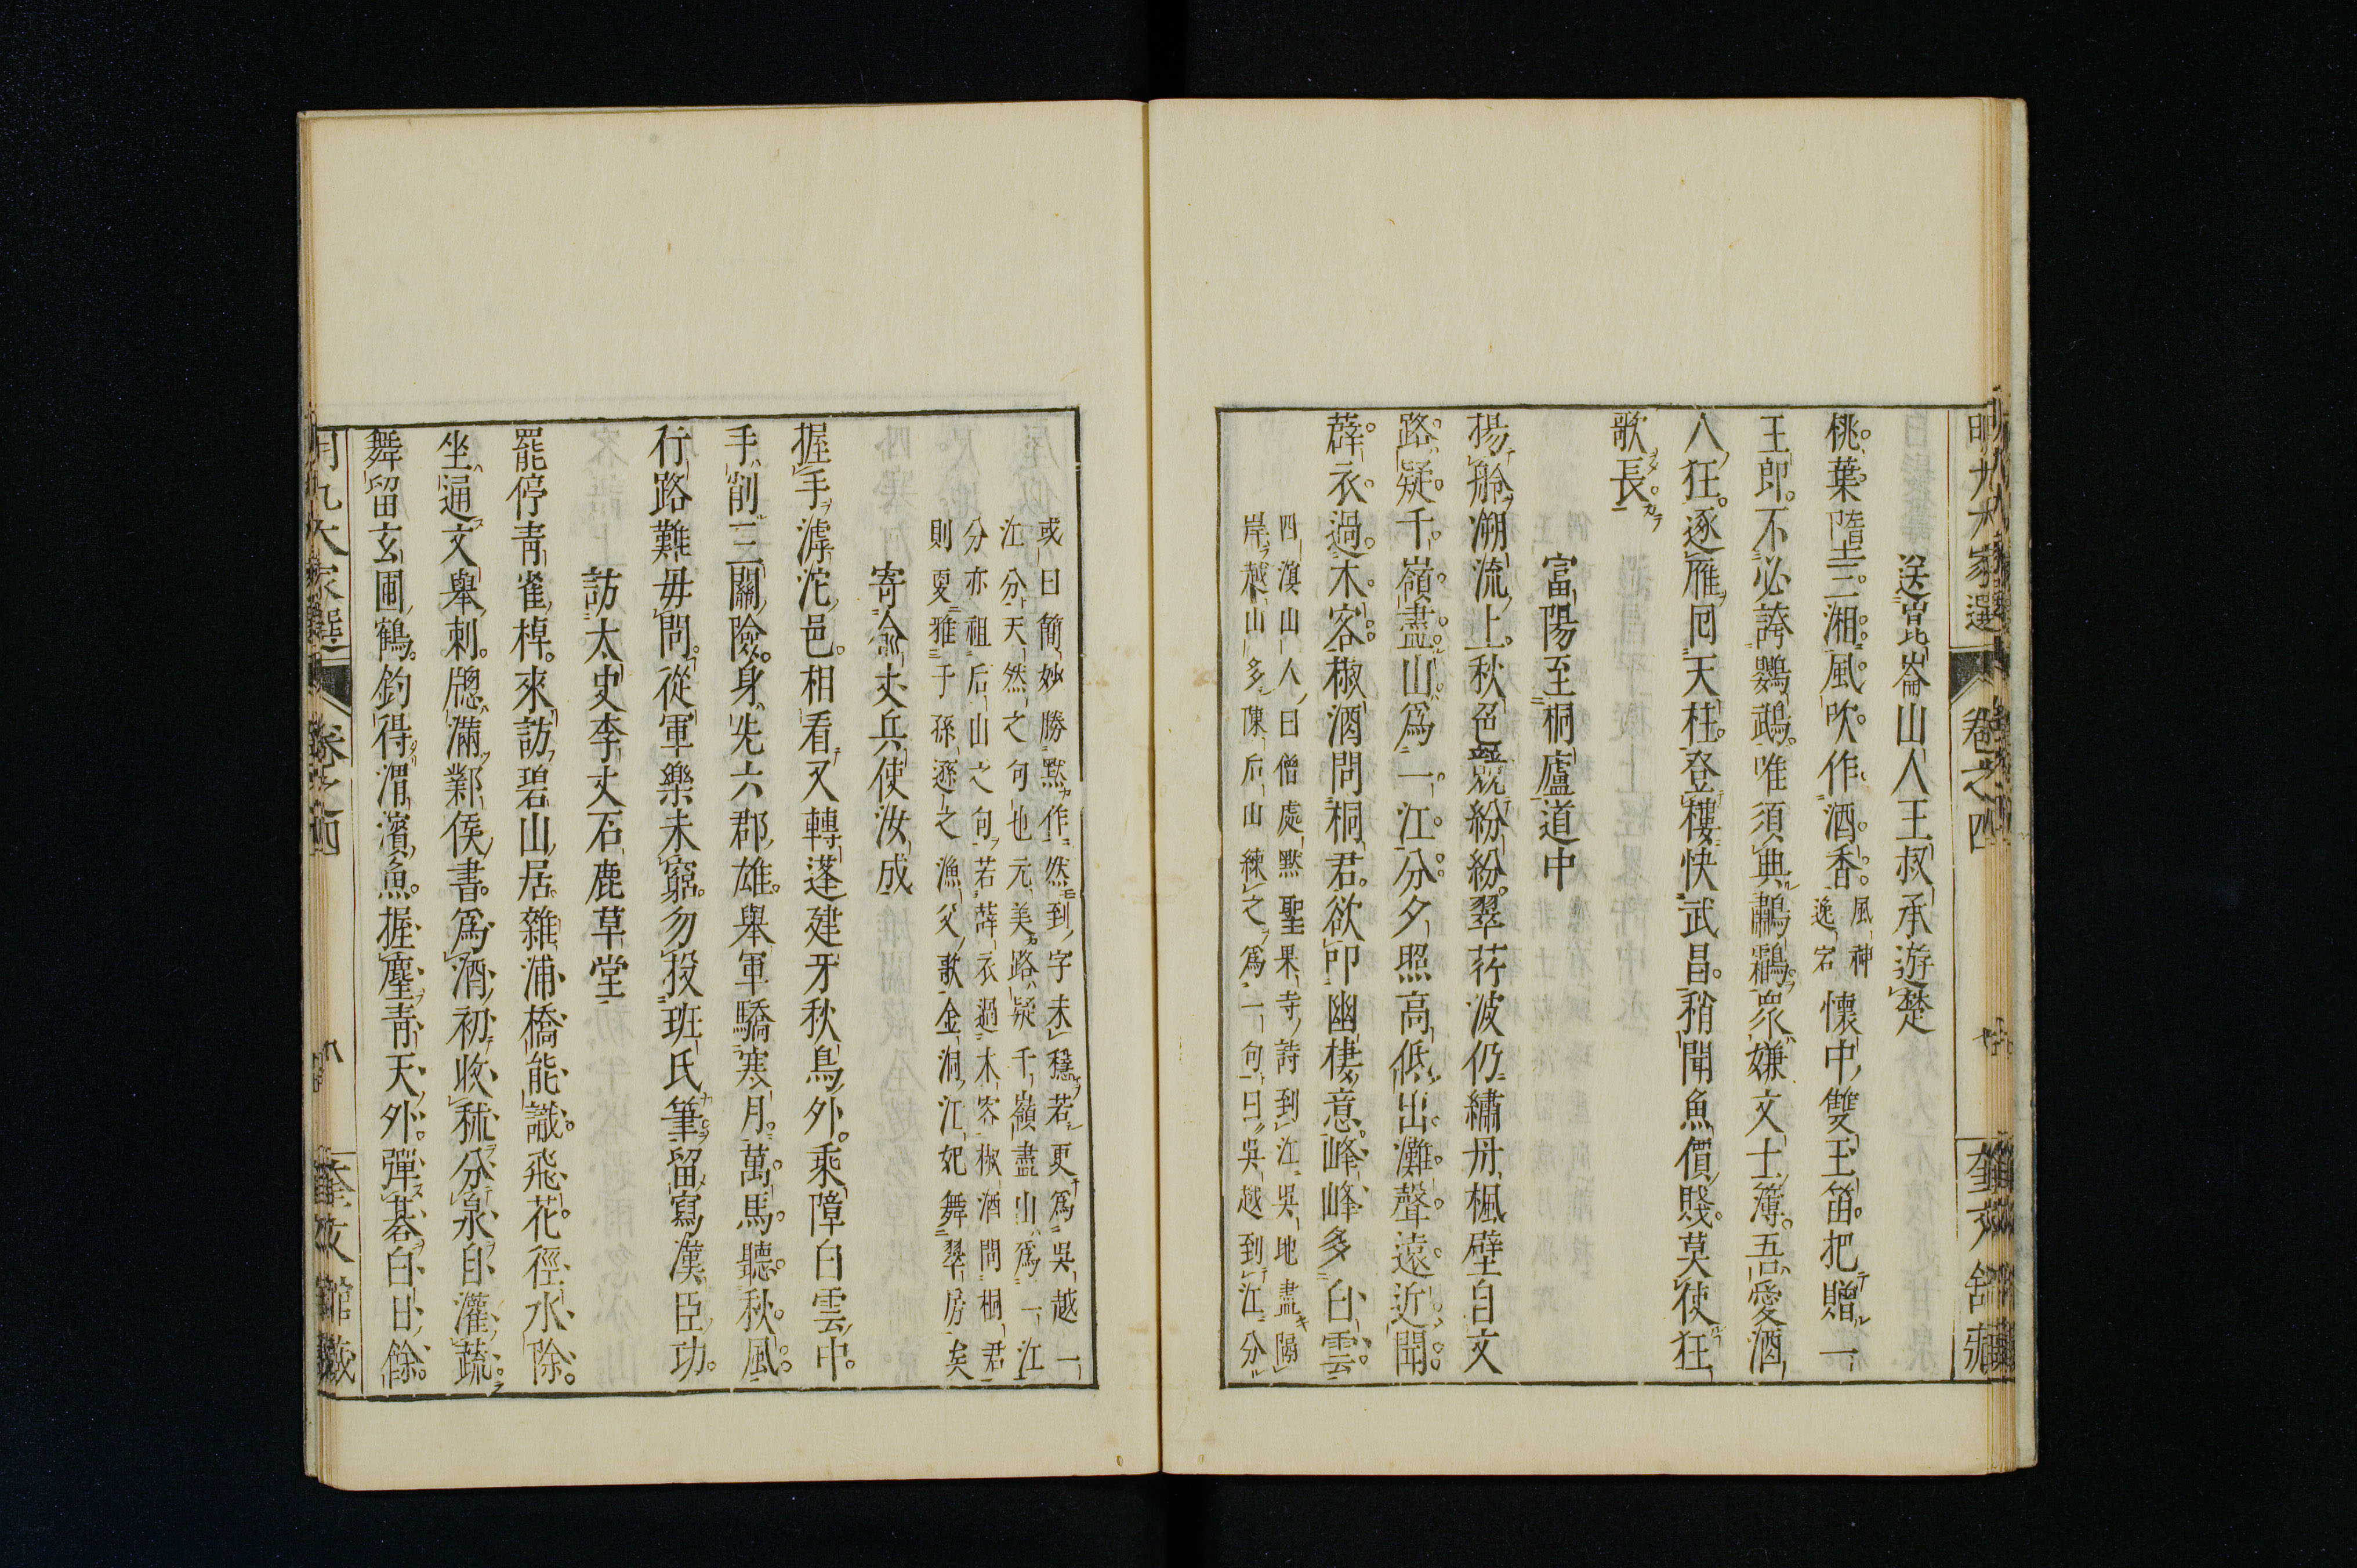 送曾昆崙山人王叔承游楚
桃葉隋
三湘風吹作酒香
風神
逸宕
懷中雙玉笛把贈一
王郎不必誇鸚鵡唯須典鷫鸘衆嫌文士簿吾愛酒
人狂逐雁回天柱登樓快武昌稍聞魚價賤莫使狂
歌長
富陽至桐廬道中
揚舲溯流上秋色競紛紛翠荇波仍繡丹楓壁自文
路疑千嶺盡山爲一江分夕照高低出灘聲遠近聞
薜衣過木客椒酒問桐君欲叩幽棲意峰峰多白雲
四溟山人曰僧處默聖果寺詩到江吳地盡隔
岸越山多陳后山練之爲一句曰吳越到江分
或曰簡妙勝默作然到字未穩若更爲吳越一
江分天然之句也元美路疑千嶺盡山爲一江
分亦祖后山之句若薜衣過木客椒酒問桐君
則更雅于孫逖之漁父歌金洞江妃舞翠房矣
寄俞丈兵使汝成
握手滹沱邑相看又轉蓬建牙秋鳥外乘障白雲中
手削三關險身先六郡雄舉軍驕寒月萬馬聽秋風
行路難毋問從軍樂未窮勿投班氏筆留寫漢臣功
訪太史李丈石鹿草堂
罷停青雀棹來訪碧山居雜浦橋能識飛花徑水除
坐通文舉刺牕滿鄴侯書爲酒初收秫分泉自灌蔬
舞留玄圃鶴釣得渭濱魚握麈青天外彈棊白日餘
明九大家選
卷之四
奎文館藏